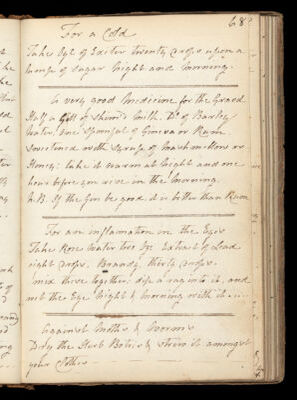 68
For a Cold
Take Oyl of Exeter twenty drops upon a
lump of Sugar Night and Morning.
A very good Medicine for the Gravel
Half a Gill of Skim'd Milk, Do. of Barley
Water, one Spoonful of Geneva or Rum
Sweetened with Syrup of Marshmallows or
Honey: take it warm at Night and one
hour before you rise in the Morning.
N.B. If the Gin be good, it is better than Rum
For an inflamation in the Eyes
Take Rose Water two oz Extract of Lead
eight drops, Brandy, thirty drops.
mix these together, dip a rag into it, and
wet the Eye Night & Morning with it
Against Moths & Worms
Dry the Herb Botris & strew it amongst
your Clothes